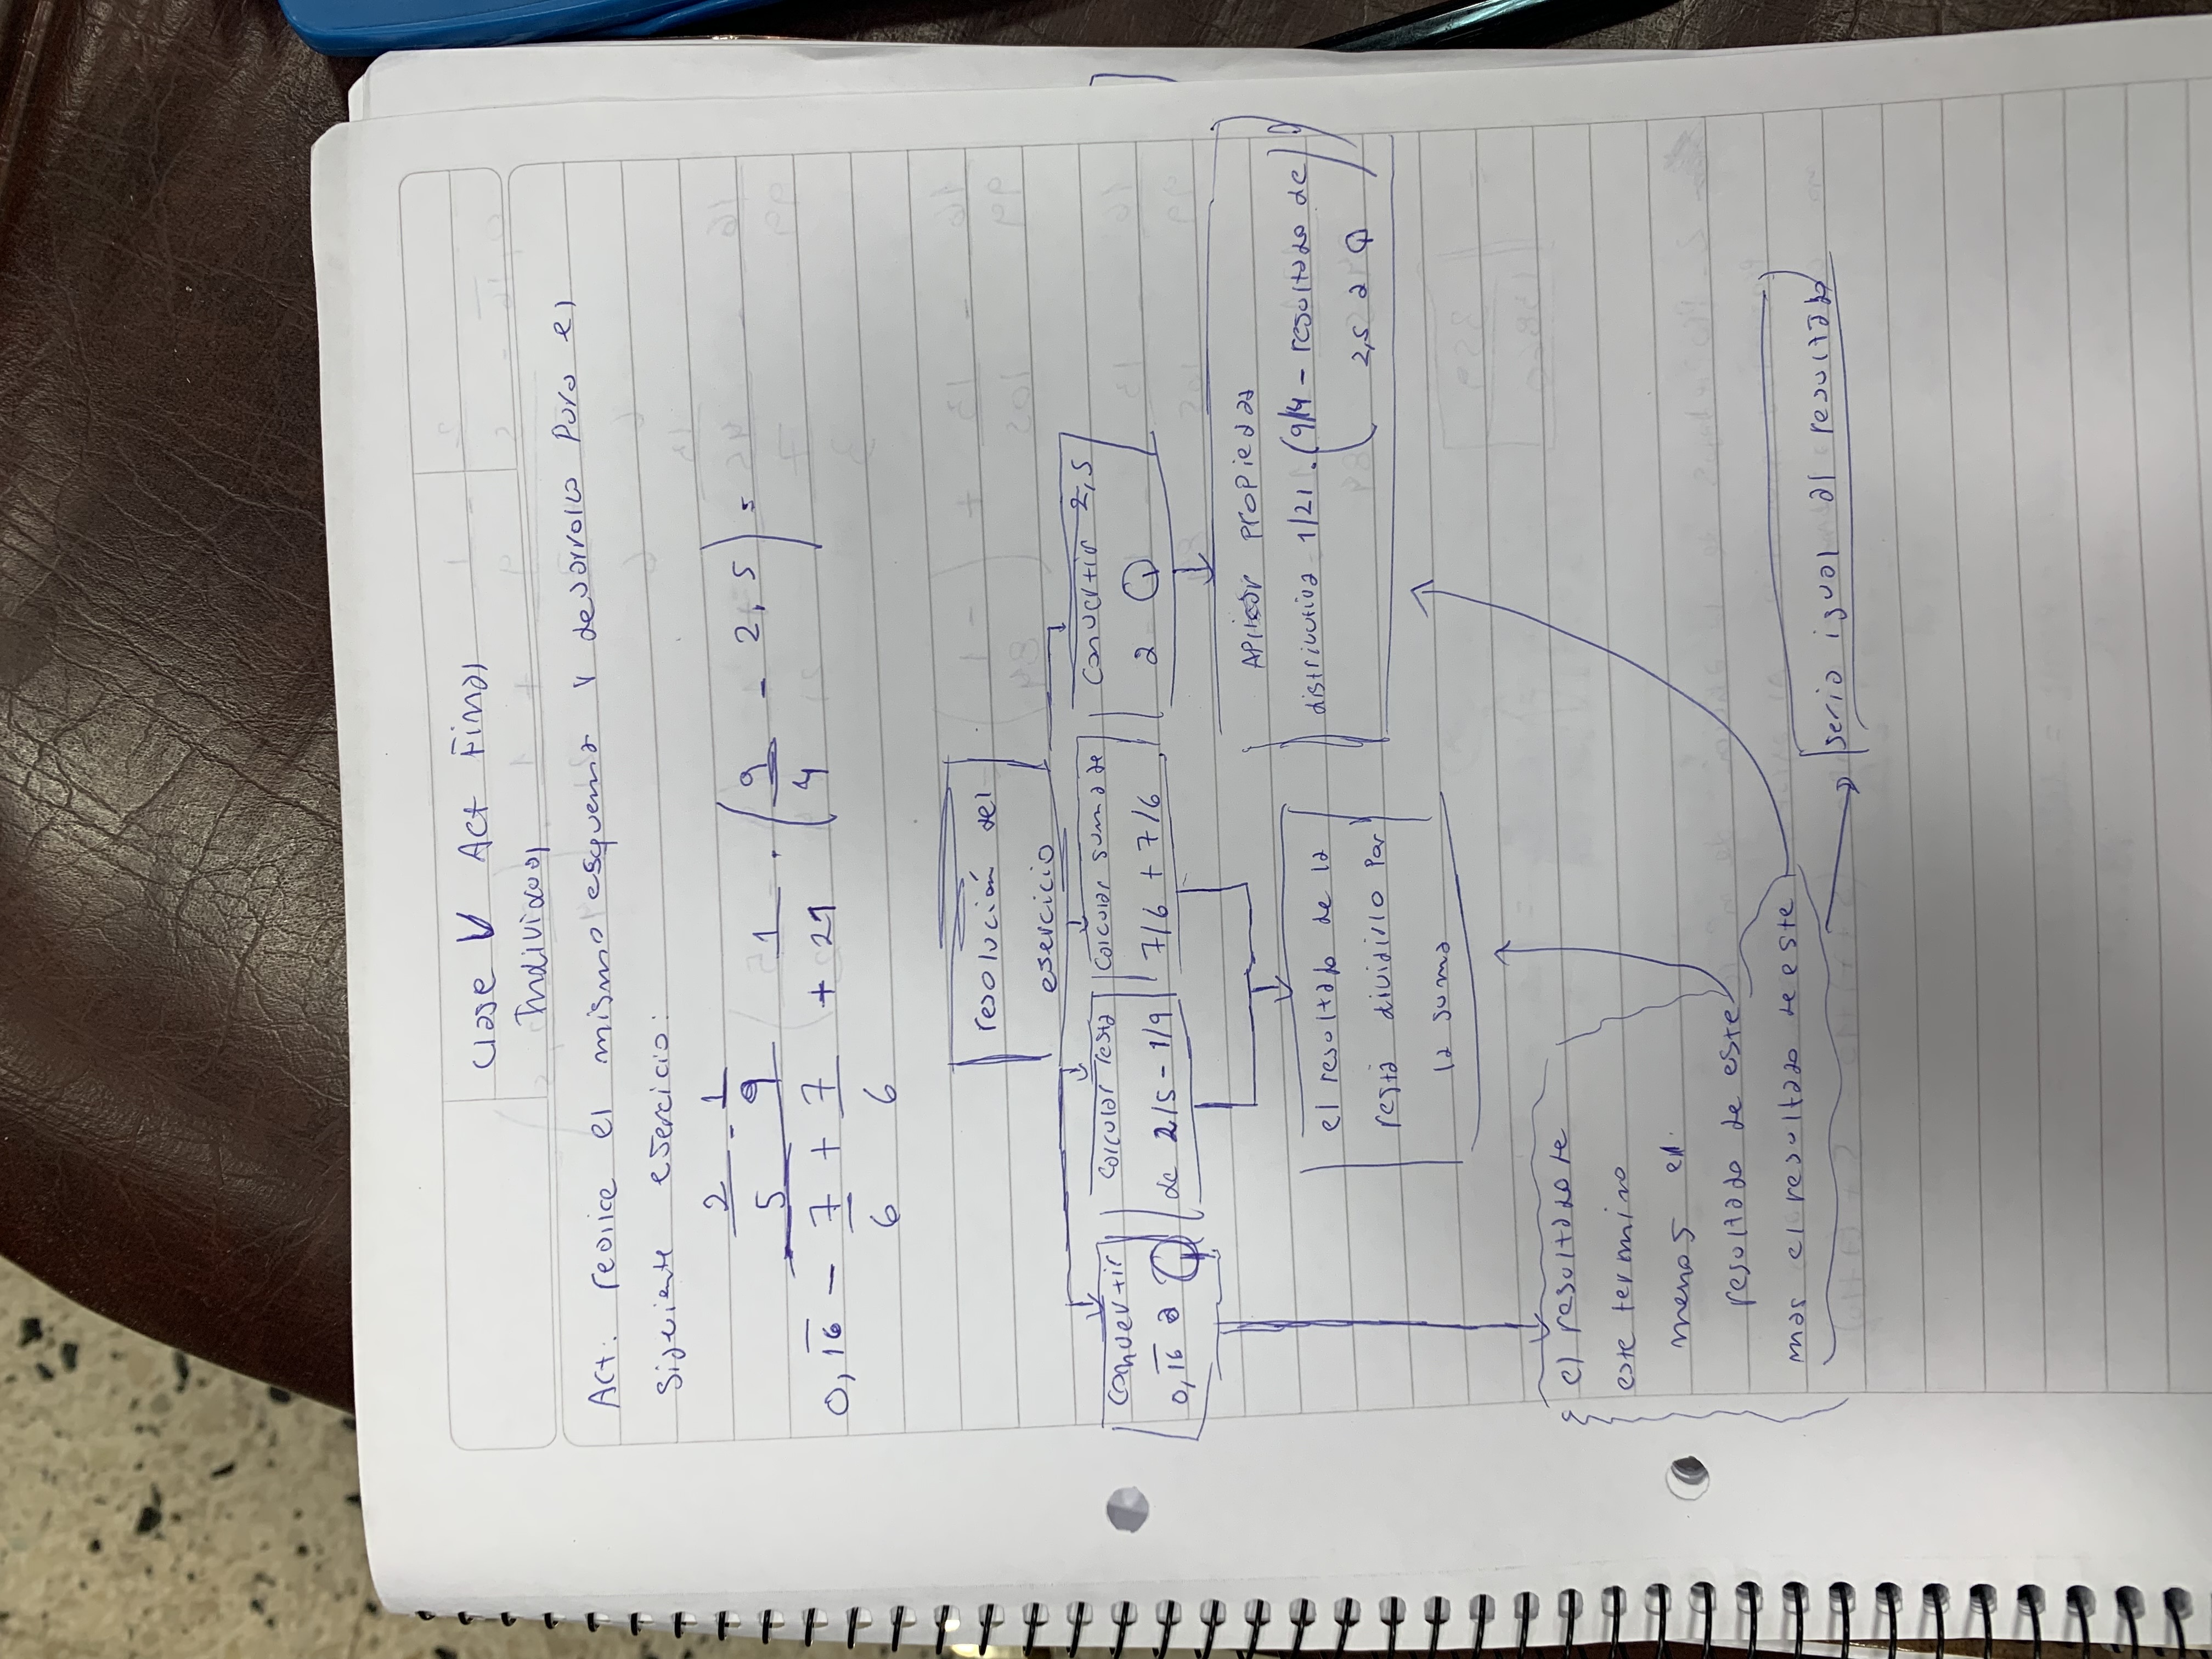 Clase V Act Final
Individual
Act: realice el mismo esquema y desarrollo para el
siguiente esercicio:
2/5 - 1/9
0,1̅6̅ - ―――― + 1/21 · (9/4 - 2,5) =
7/6 + 7/6
resolución del
esercicio
Convertir
0,1̅6̅ a Q
Calcular resta
de 2/5 - 1/9
Calcular suma de
7/6 + 7/6
Convertir 2,5
a Q
el resultado de la
resta dividirlo por
la suma
Aplicar propiedad
distributiva 1/21 . (9/4 - resultado de
2,5 a Q)
el resultado de
este termino
menos el
resultado de este
mas el resultado de este
seria igual al resultado